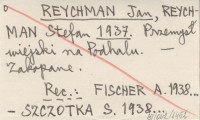 REYCHMAN Jan, REYCH-
MAN Stefan 1937. Przemysł
wiejski na Podhalu. —
Zakopane.
Rec.: FISCHER A. 1938...
— SZCZOTKA S. 1938...